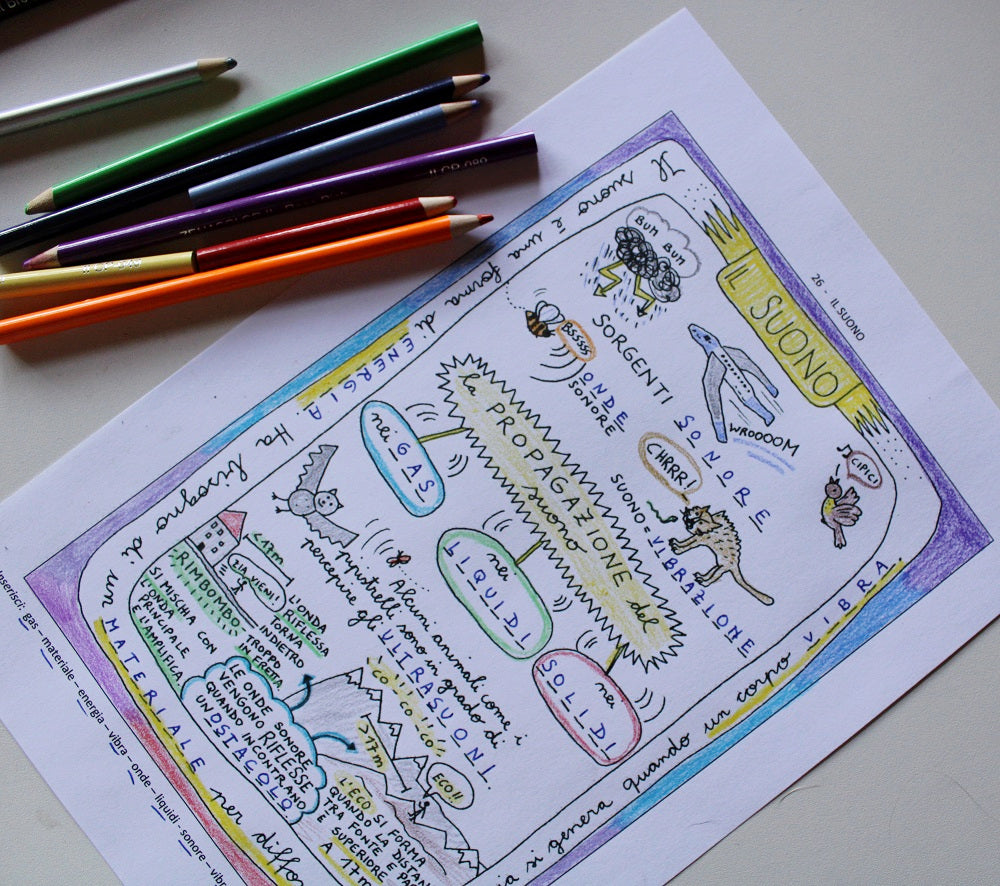 26 - IL SUONO
IL SUONO
Il suono è una forma di ENERGIA. Ha bisogno di un MATERIALE per diffo
si genera quando un corpo VIBRA.
BUM BUM
BSSSSS
SORGENTI
SONORE
WROOOOM
CIPICI
ONDE
SONORE
CHRRR!
SUONO = VIBRAZIONE
la PROPAGAZIONE del
suono
nei GAS
nei
LIQUIDI
nei
SOLIDI
Alcuni animali come i
pipistrelli sono in grado di
percepire gli ULTRASUONI
<17m
ZIA, VIENI!
RIMBOMBO
SI MISCHIA CON
ONDA
PRINCIPALE
E L'AMPLIFICA
L'ONDA
RIFLESSA
TORNA
INDIETRO
TROPPO
IN FRETTA
LE ONDE SONORE
VENGONO RIFLESSE
QUANDO INCONTRANO
UN OSTACOLO
>17m
ECO!!
L'ECO SI FORMA
QUANDO LA DISTAN
TRA FONTE E PA
È SUPERIORE
A 17m
Inserisci: gas – materiale – energia – vibra – onde – liquidi - sonore – vibr